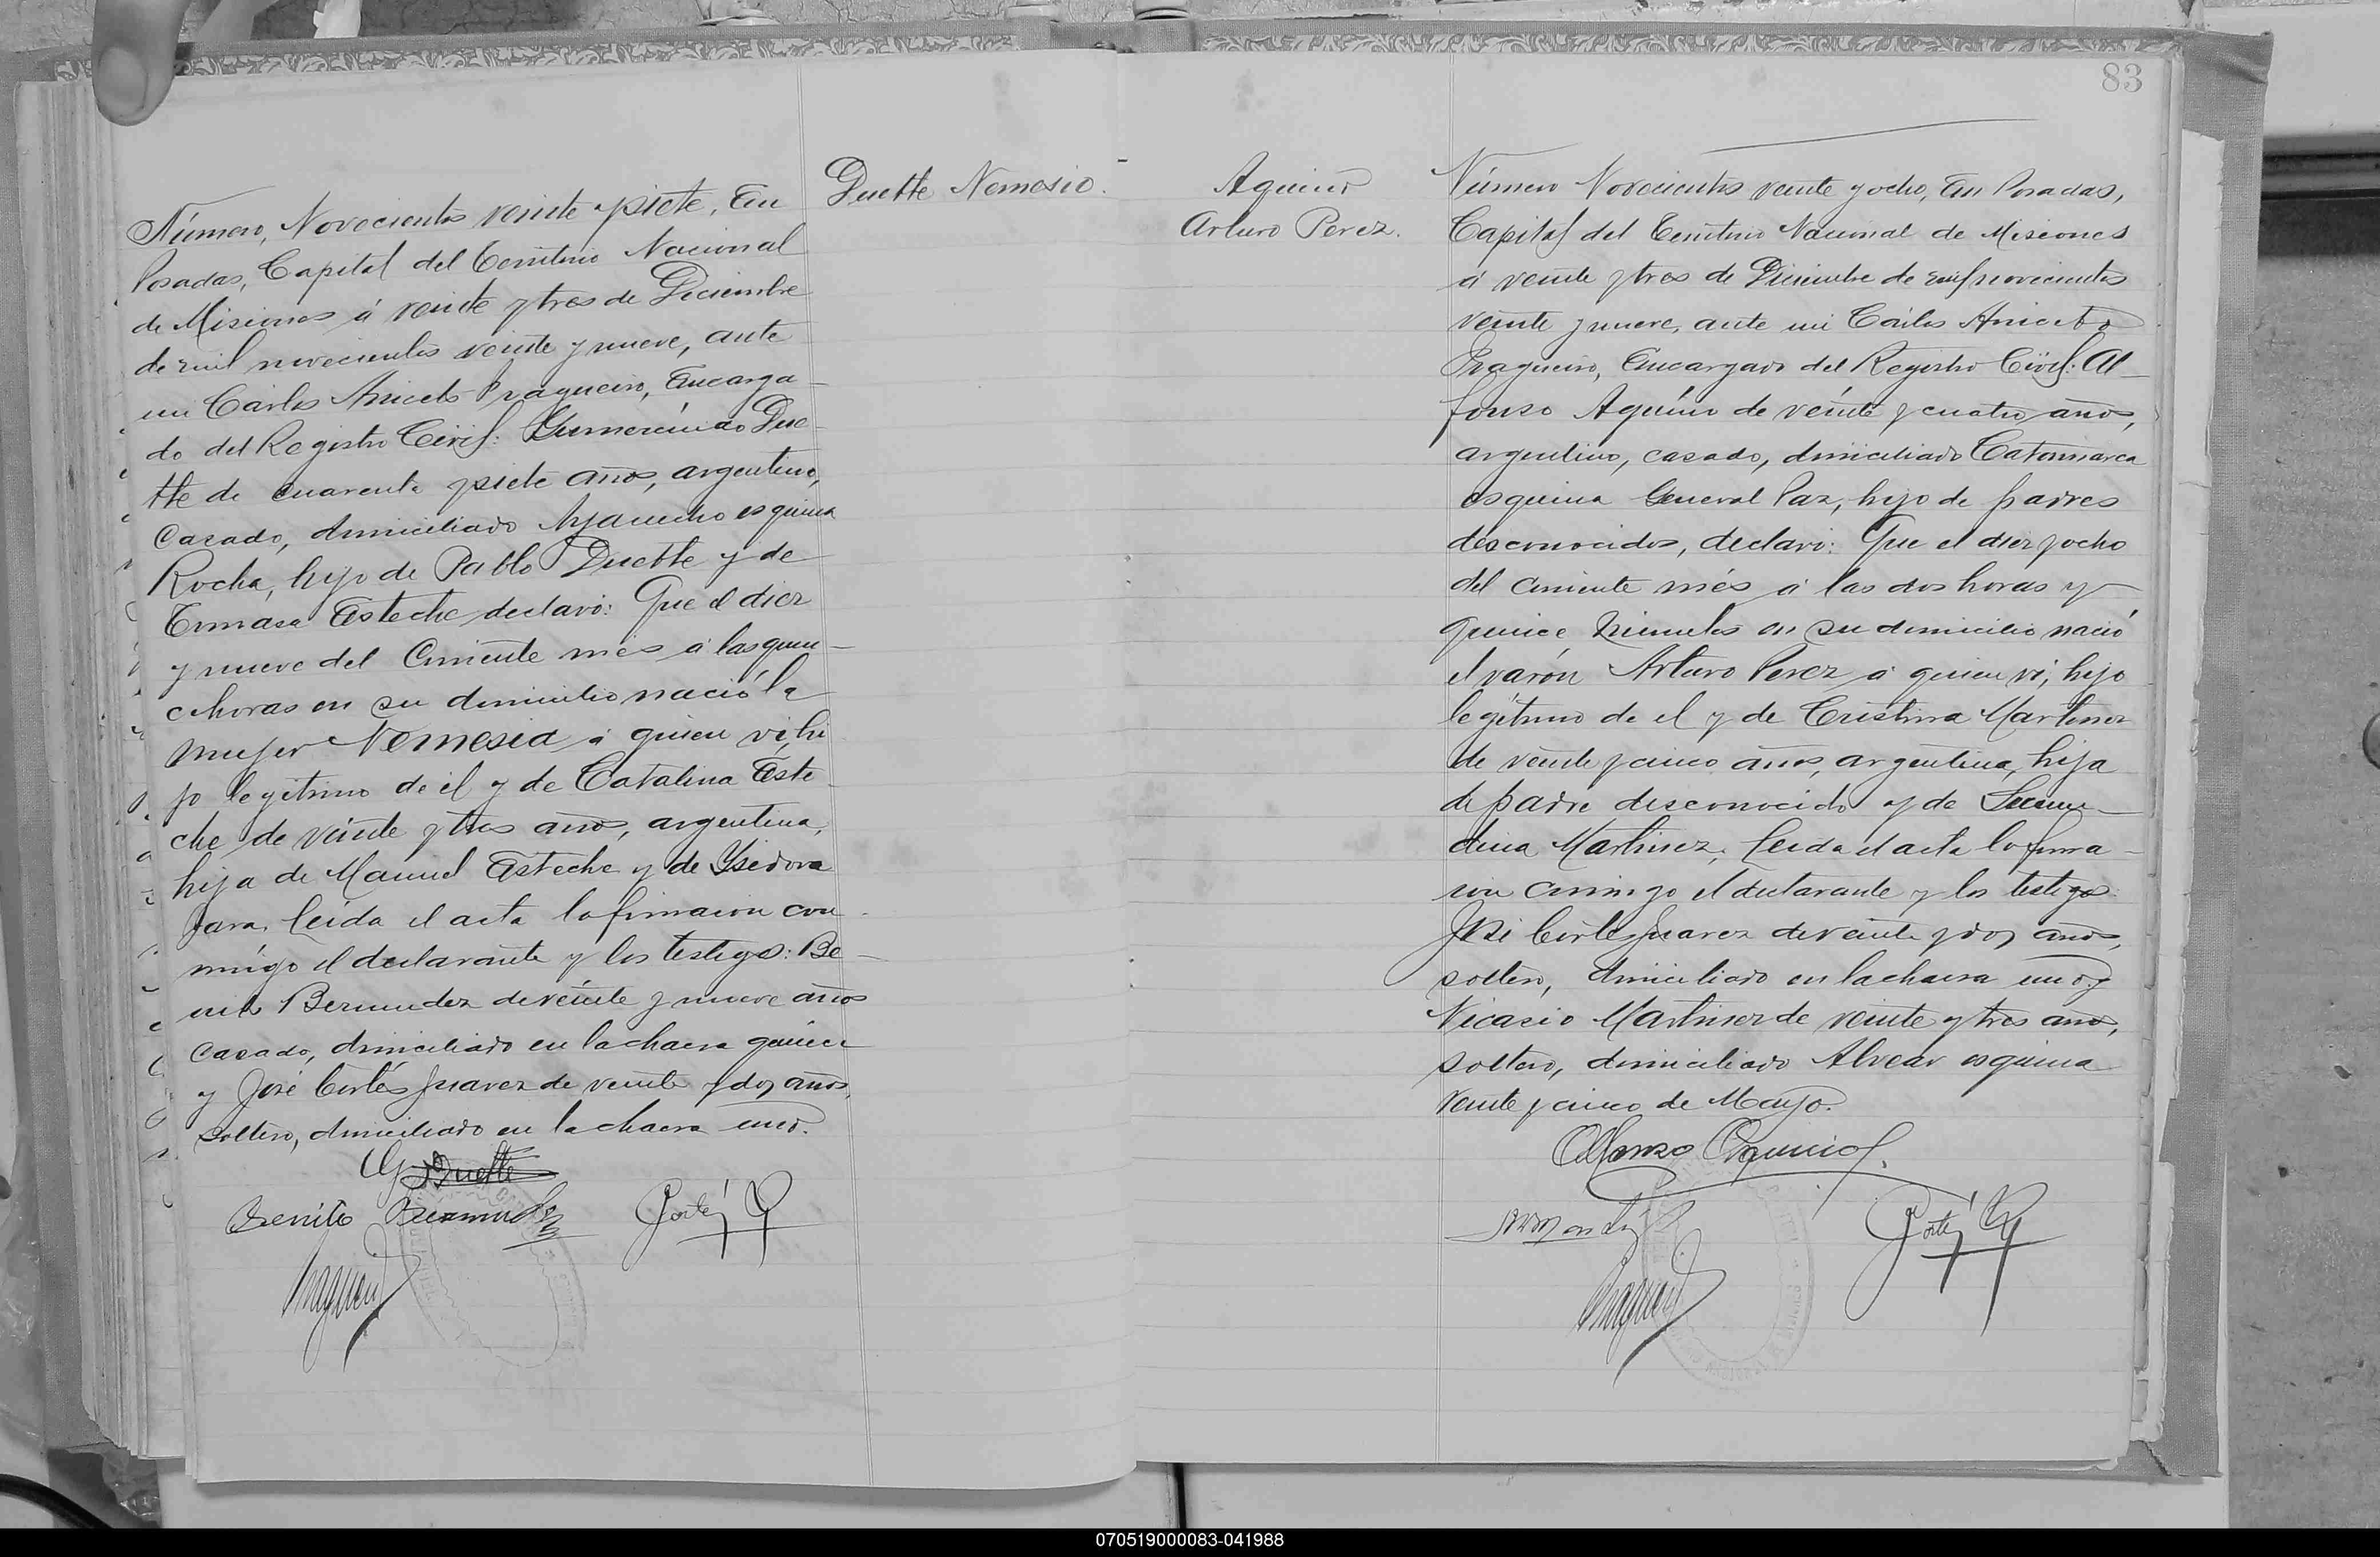 Duette Nemesio.
Número, Novecientos veinte y siete, En
Posadas, Capital del Territorio Nacional
de Misiones á veinte y tres de Diciembre
de mil novecientos veinte y nueve, ante
mi Cárlos Aniceto Fragueiro, Encarga-
do del Registro Civil: Gumercindo Due-
tte de cuarenta y siete años, argentino,
casado, domiciliado Ayacucho esquina
Rocha, hijo de Pablo Duette y de
Tomasa Esteche declaró: Que el diez
y nueve del corriente més á las quin-
ce horas en su domicilio nació la
mujer Nemesia á quien ví, hi
jo legítimo de él y de Catalina Este-
che de veinte y tres años, argentina,
hija de Manuel Esteche y de Ysidora
Jara, Leída el acta la firmaron con-
migo el declarante y los testigos: Be-
nito Bermudez de veinte y nueve años
casado, domiciliado en la chacra quince
y José Cortés Juarez de veinte y dos años,
soltero, domiciliado en la chacra uno.
G Duette
Benito Bermudez
Cortés
Fragueiro
83
Aquino
Arturo Perez.
Número Novecientos veinte y ocho, En Posadas,
Capital del Territorio Nacional de Misiones
á veinte y tres de Diciembre de mil novecientos
veinte y nueve, ante mi Cárlos Aniceto
Fragueiro, Encargado del Registro Civil: Al-
fonso Aquino de veinte y cuatro años,
argentino, casado, domiciliado Catamarca
esquina General Paz, hijo de padres
desconocidos, declaró: Que el diez y ocho
del corriente més á las dos horas y
quince minutos en su domicilio nació
el varón Arturo Perez á quien ví, hijo
legítimo de el y de Cristina Martinez
de veinte y cinco años, argentina, hija
de padre desconocido y de Secun-
dina Martinez, Leida el acta la firma-
ron conmigo el declarante y los testigos:
José Cortés Juarez de veinte y dos años,
soltero, domiciliado en la chacra uno y
Nicasio Martinez de veinte y tres años,
soltero, domiciliado Alvear esquina
veinte y cinco de Mayo.
Alfonso Aquino
Cortés
Fragueiro
070519000083-041988